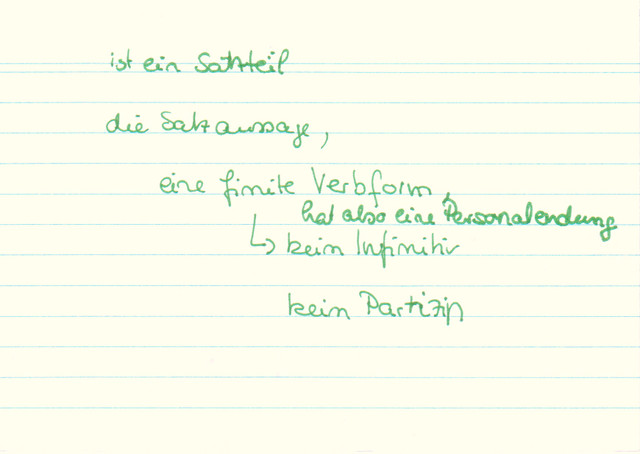 ist ein Satzteil
die Satzaussage,
eine finite Verbform,
hat also eine Personalendung
↳ kein Infinitiv
kein Partizip